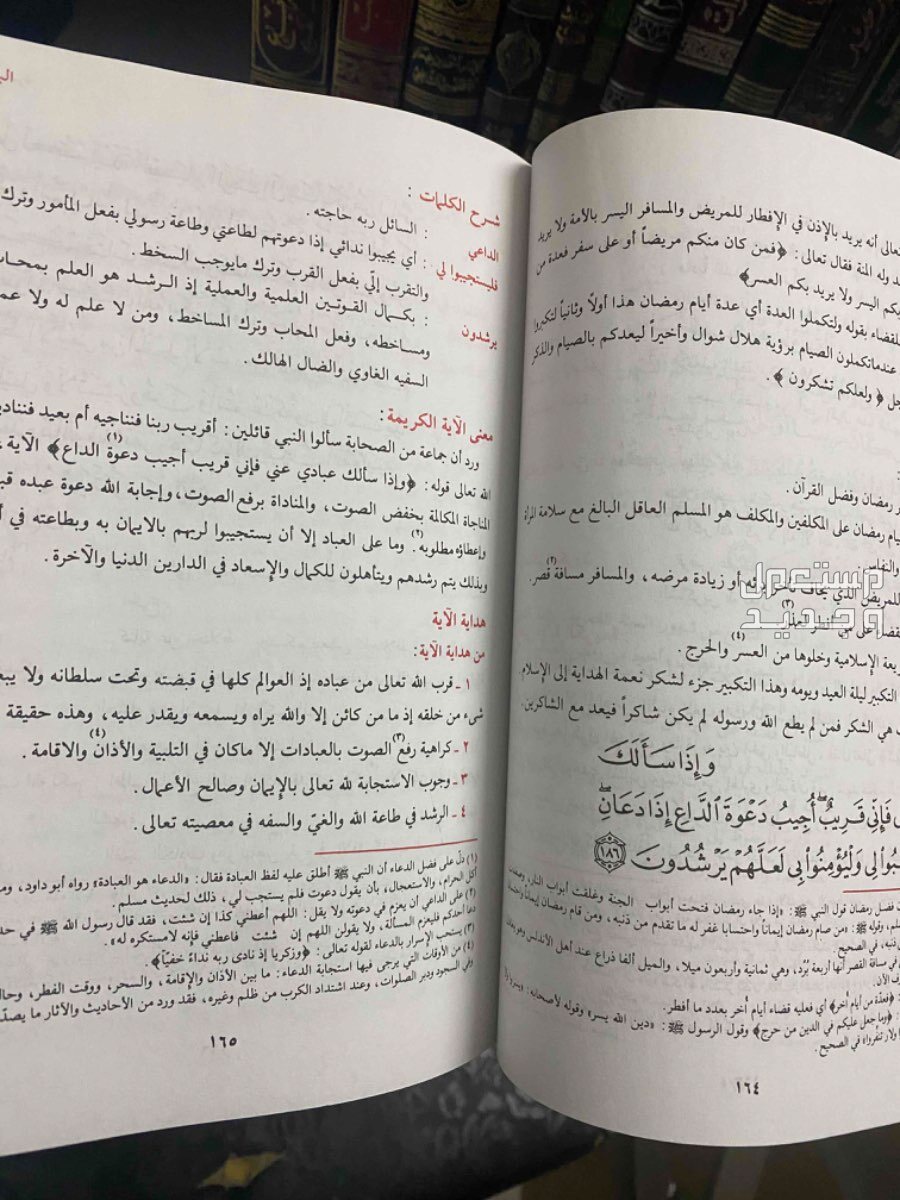 تعالى أنه يريد بالإذن في الإفطار للمريض والمسافر اليسر بالأمة ولا يريد
وله المنة فقال تعالى: ﴿فمن كان منكم مريضاً أو على سفر فعدة من
بكم اليسر ولا يريد بكم العسر﴾
القضاء بقوله ولتكملوا العدة أي عدة أيام رمضان هذا أولاً وثانياً لتكبروا
عندماتكملون الصيام برؤية هلال شوال وأخيراً ليعدكم بالصيام والذكر
﴿ ولعلكم تشكرون ﴾ .
رمضان وفضل القرآن .
رمضان على المكلفين والمكلف هو المسلم العاقل البالغ مع سلامة المرأة
والنفاس .
للمريض الذي يخاف أو زيادة مرضه، والمسافر مسافة قصر.(٢)
على من أفطر لعذر(٣)
الإسلامية وخلوها من العسر(٤) والحرج .
التكبير ليلة العيد ويومه وهذا التكبير جزء لشكر نعمة الهداية إلى الإسلام
هي الشكر فمن لم يطع الله ورسوله لم يكن شاكراً فيعد مع الشاكرين.
وَإِذَا سَأَلَكَ
فَإِنِّي قَرِيبٌ أُجِيبُ دَعْوَةَ الدَّاعِ إِذَا دَعَانِ
وَلْيُؤْمِنُوا بِي لَعَلَّهُمْ يَرْشُدُونَ ١٨٦
فضل رمضان قول النبي ﷺ: «إذا جاء رمضان فتحت أبواب الجنة وغلقت أبواب النار،
وقوله ﷺ: «من صام رمضان إيماناً واحتسابا غفر له ما تقدم من ذنبه، ومن قام رمضان إيماناً
ذنبه، في الصحيح
في مسافة القصر أنها أربعة بُرُد، وهي ثمانية وأربعون ميلا، والميل ألفا ذراع عند أهل الأندلس
الآن.
﴿فعدّة من أيام أُخر﴾ أي فعليه قضاء أيام أُخر بعدد ما أفطر.
﴿وما جعل عليكم في الدين من حرج﴾ وقول الرسول ﷺ: «دين الله يسر» وقوله لأصحابه:
ولا تنفروا» في الصحيح .
١٦٤
شرح الكلمات :
الداعي : السائل ربه حاجته .
فليستجيبوا لي : أي يجيبوا ندائي إذا دعوتهم لطاعتي وطاعة رسولي بفعل المأمور وترك
والتقرب إليّ بفعل القرب وترك مايوجب السخط .
يرشدون : بكمال القوتين العلمية والعملية إذ الرشد هو العلم بمحاب
ومساخطه، وفعل المحاب وترك المساخط، ومن لا علم له ولا عمل
السفيه الغاوي والضال الهالك .
معنى الآية الكريمة :
ورد أن جماعة من الصحابة سألوا النبي قائلين: أقريب ربنا فنناجيه أم بعيد فنناديه
الله تعالى قوله: ﴿وإذا سألك عبادي عني فإني قريب أجيب دعوة(١) الداع﴾ الآية،
المناجاة المكالمة بخفض الصوت، والمناداة برفع الصوت، وإجابة الله دعوة عبده
وإعطاؤه مطلوبه(٢). وما على العباد إلا أن يستجيبوا لربهم بالايمان به وبطاعته في
وبذلك يتم رشدهم ويتأهلون للكمال والإسعاد في الدارين الدنيا والآخرة .
هداية الآية
من هداية الآية :
١ ـ قرب الله تعالى من عباده إذ العوالم كلها في قبضته وتحت سلطانه ولا
شيء من خلقه إذ ما من كائن إلا والله يراه ويسمعه ويقدر عليه، وهذه حقيقة
٢ ـ كراهية رفع(٣) الصوت بالعبادات إلا ماكان في التلبية والأذان(٤) والاقامة .
٣ ـ وجوب الاستجابة لله تعالى بالإيمان وصالح الأعمال .
٤ ـ الرشد في طاعة الله والغيّ والسفه في معصيته تعالى .
(١) دلّ على فضل الدعاء أن النبي ﷺ أطلق عليه لفظ العبادة فقال: «الدعاء هو العبادة» رواه أبو داود،
أكل الحرام، والاستعجال، بأن يقول دعوت فلم يستجب لي، ذلك لحديث مسلم .
(٢) على الداعي أن يعزم في دعوته ولا يقل: اللهم أعطني كذا إن شئت، فقد قال رسول الله ﷺ في
دعا أحدكم فليعزم المسألة، ولا يقولن اللهم إن شئت فاعطني فإنه لامستكره له» .
(٣) يستحب الإسرار بالدعاء لقوله تعالى: ﴿وزكريا إذ نادى ربه نداءً خفيّاً﴾ .
(٤) من الأوقات التي يرجى فيها استجابة الدعاء: ما بين الأذان والإقامة، والسحر، ووقت الفطر،
وفي السجود ودبر الصلوات، وعند اشتداد الكرب من ظلم وغيره، فقد ورد من الأحاديث والآثار ما
١٦٥
مستعمل
وجديد